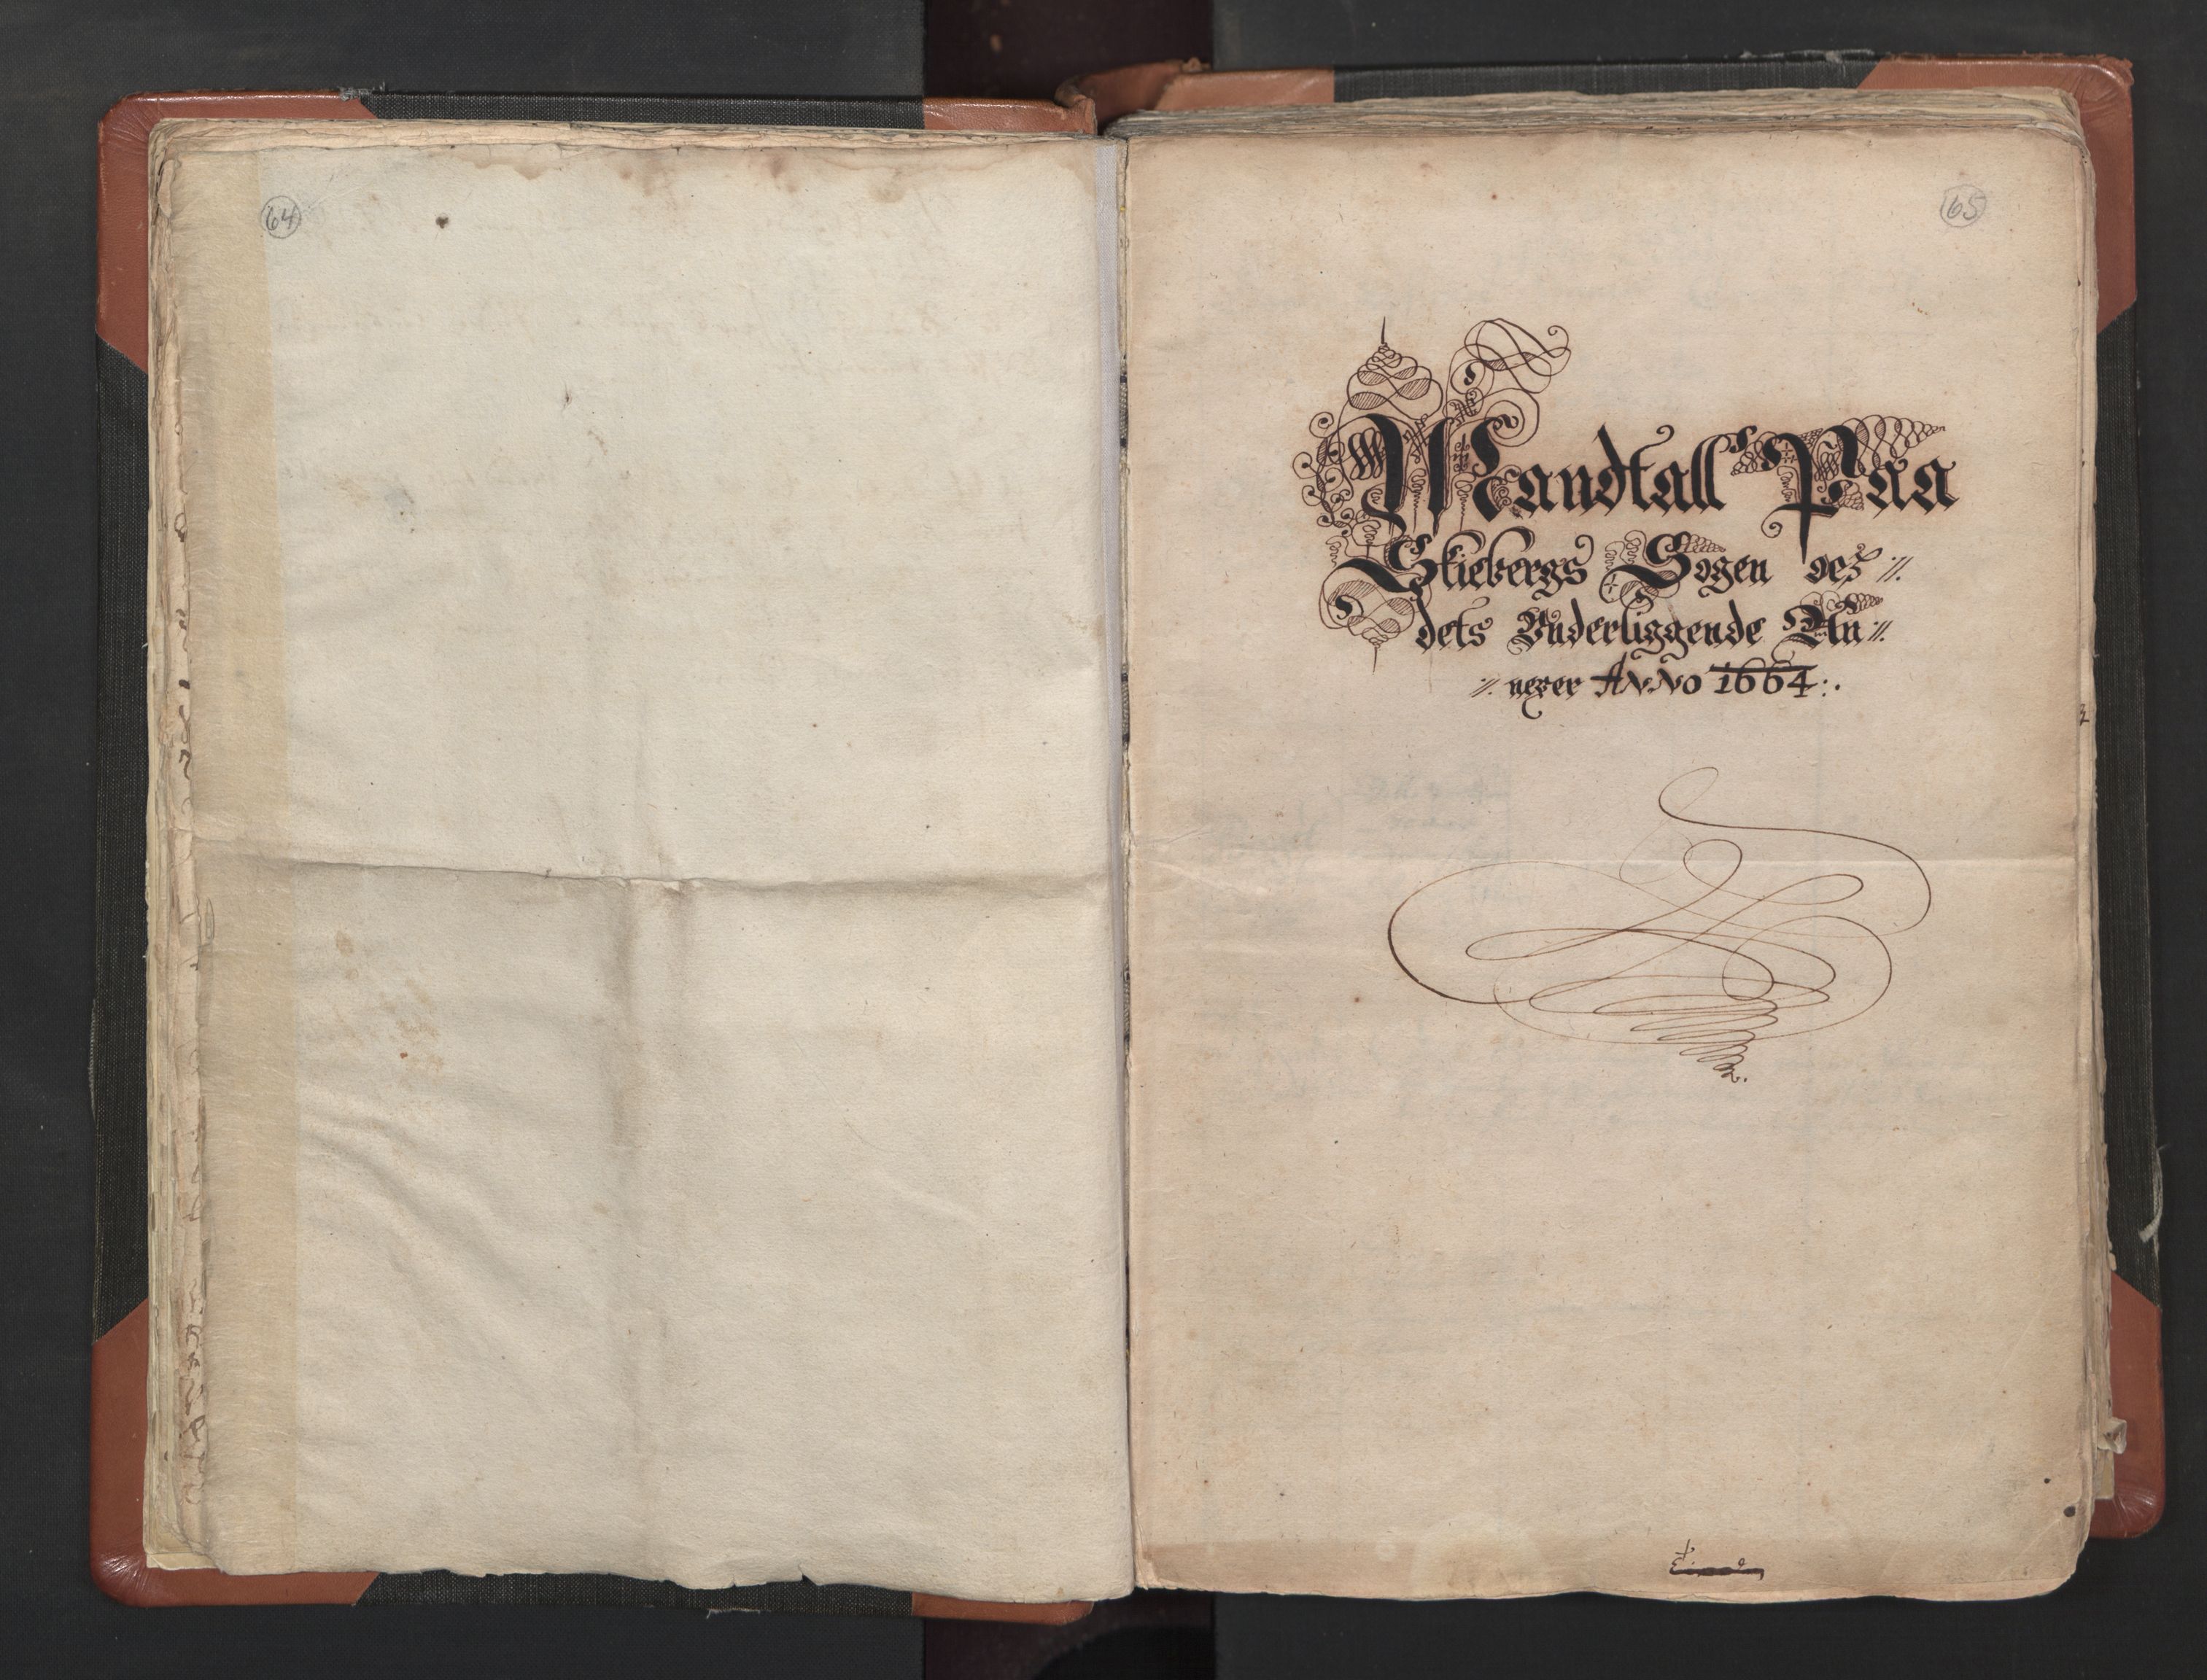 64
65
Mandtall Paa
Skiebergs Sogen oc
dets Underliggende An://:
://: nexer ANNO 1664:.